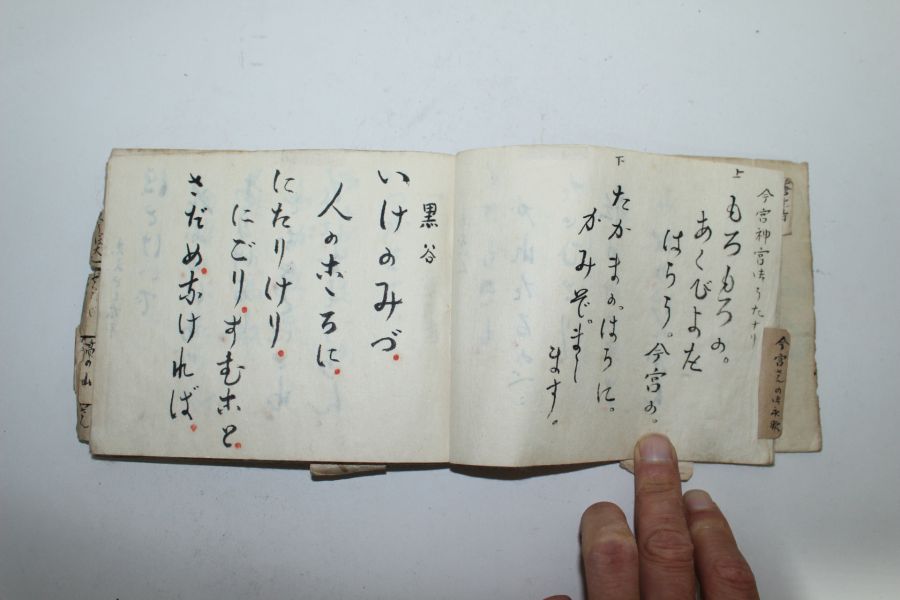 今宮神宮はうたナリ
上
もろもろの。
あくびよを
はらう。今宮の。
下
たかまの。はらに。
かみぞ。まし
ます。
今宮さんの御永歌
黒谷
いけのみづ。
人のこゝろに。
にたりけり。
にごり。すむこと
さだめ。なければ。